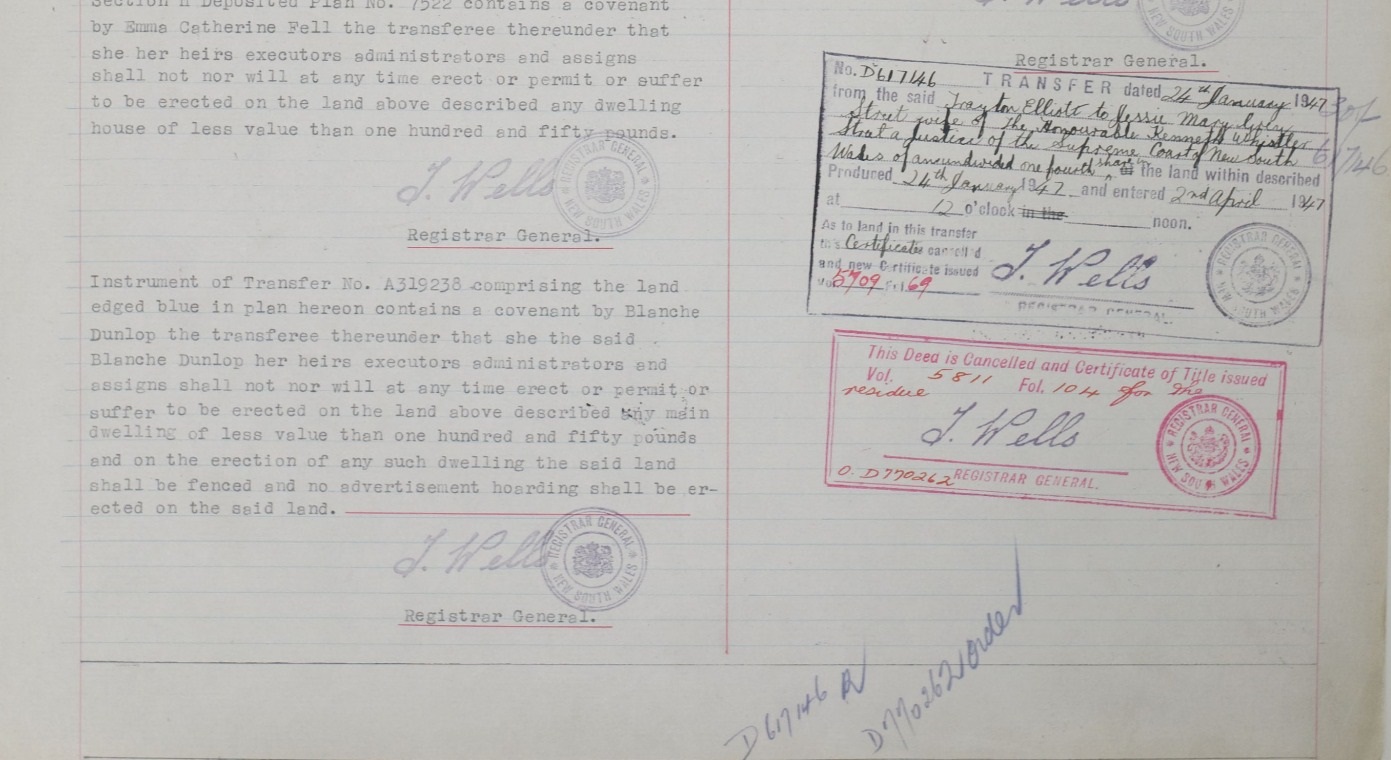 Section H Deposited Plan No. 7522 contains a covenant
by Emma Catherine Fell the transferee thereunder that
she her heirs executors administrators and assigns
shall not nor will at any time erect or permit or suffer
to be erected on the land above described any dwelling
house of less value than one hundred and fifty pounds.
J. Wells
REGISTRAR GENERAL NEW SOUTH WALES
Registrar General.
Instrument of Transfer No. A319238 comprising the land
edged blue in plan hereon contains a covenant by Blanche
Dunlop the transferee thereunder that she the said
Blanche Dunlop her heirs executors administrators and
assigns shall not nor will at any time erect or permit or
suffer to be erected on the land above described any main
dwelling of less value than one hundred and fifty pounds
and on the erection of any such dwelling the said land
shall be fenced and no advertisement hoarding shall be er-
ected on the said land.
J. Wells
REGISTRAR GENERAL NEW SOUTH WALES
Registrar General.
J. Wells
Registrar General.
No. D617146 TRANSFER dated 24th January 1947
from the said Elliott to Jessie Mary
Street wife of the Honourable Kenneth Whistler
Street a Justice of the Supreme Court of New South
Wales of an undivided one fourth share in the land within described
Produced 24th January 1947 and entered 2nd April 1947
at 12 o'clock in the noon.
As to land in this transfer
Certificate cancelled
and new Certificate issued
Vol. 5709 Fol. 69
J. Wells
REGISTRAR GENERAL.
REGISTRAR GENERAL NEW SOUTH WALES
617146
This Deed is Cancelled and Certificate of Title issued
Vol. 5811 Fol. 104 for the
residue
J. Wells
O. D770262 REGISTRAR GENERAL.
REGISTRAR GENERAL NEW SOUTH WALES
D617146 R
D770262 Order